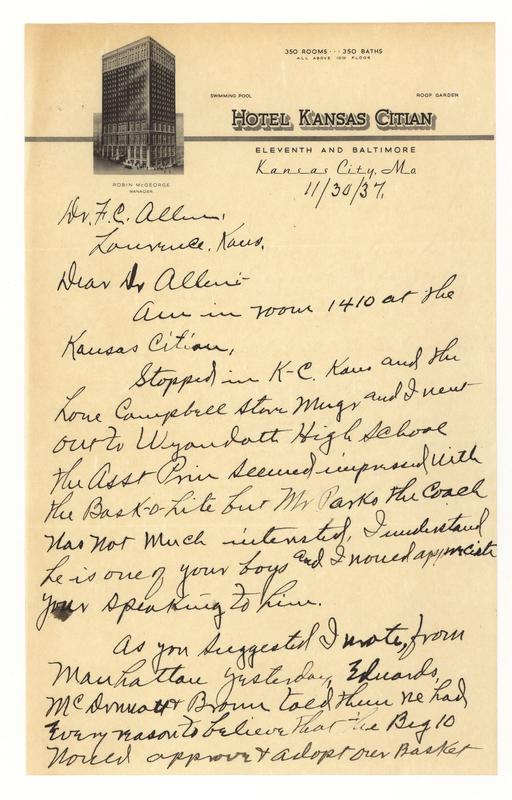 350 ROOMS · · · 350 BATHS
ALL ABOVE 10TH FLOOR
SWIMMING POOL
ROOF GARDEN
HOTEL KANSAS CITIAN
ELEVENTH AND BALTIMORE
Kansas City, Mo
ROBIN McGEORGE
MANAGER
11/30/37.
Dr. F. C. Allen,
Lawrence. Kans.
Dear Dr Allen:-
Am in room 1410 at the
Kansas Citian,
Stopped in K-C. Kans and the
Lone Campbell Store Mngr and I went
out to Wyandott High School
the Asst Prin seemed impressed with
the Bask-o-Lite but Mr Parks the Coach
was not Much intersted, I understand
he is one of your boys and I would appreciate
your speaking to him.
As you suggested I wrote, from
Manhattan yesterday, Edwards,
McDermott & Brown told them we had
Every reason to believe that the Big 10
would approve & adopt our Basket